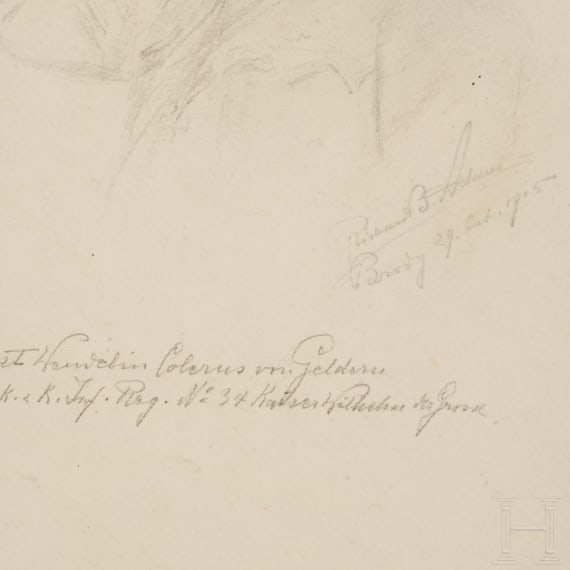 Richard B. Adam
Brody 29. Oct. 1915
Wendelin Colerus von Geldern
K. u K. Inf. Reg. No 34 Kaiser Wilhelm der Grosse
H